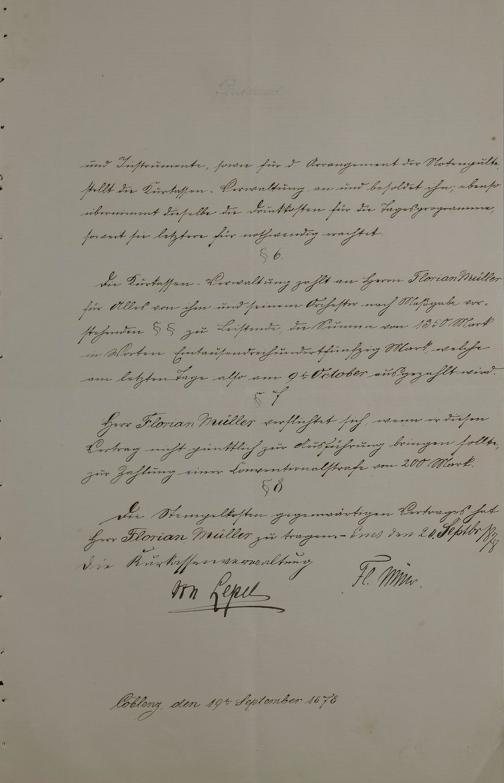 und Instrumente, sowie für d Arrangement der Notenpulte,
stellt die Kurkassen-Verwaltung an und besoldet ihn; ebenso
übernimmt dieselbe die Druckkosten für die Tagesprogramme,
soweit sie letztere für nothwendig erachtet.
§ 6.
Die Kurkassen-Verwaltung zahlt an Herrn Florian Müller
für Alles von ihm und seinem Orchester nach Maßgabe vor-
stehenden §§ zu Leistende, die Summa von 1350 Mark
in Worten Eintausenddreihundertfünfzig Mark, welche
am letzten Tage also am 9t October ausgezahlt wird.
§ 7
Herr Florian Müller verpflichtet sich, wenn er diesen
Vertrag nicht pünktlich zur Ausführung bringen sollte,
zur Zahlung einer Conventionalstrafe von 200 Mark.
§ 8
Die Stempelkosten gegenwärtigen Vertrages hat
Herr Florian Müller zu tragen. Ems den 20. Septbr 1878
Die Kurkassenverwaltung
von Lepel
Fl. Müller.
Coblenz den 19t September 1878